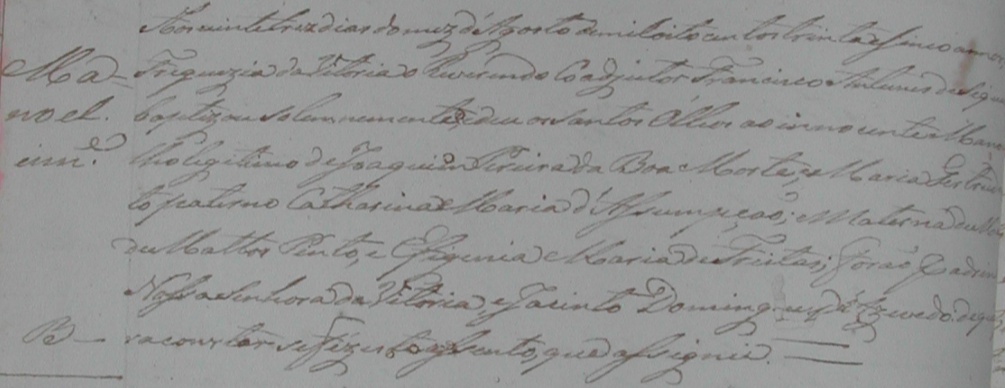 Aos vinte trez dias do mez d'Agosto de mil oito centos trinta e sinco annos
Ma- Freguezia da Vitoria o Reverendo Coadjutor Francisco Antunes de Siqu
noel. baptizou solemnemente, e deu os Santos Olleos ao innocente Mano
inn.e lho legitimo de Joaquim Pereira da Boa Morte, e Maria Gertru
to paterno Catharina Maria d'Assumpção; e Materna de
de Mattos Pinto, e Efigenia Maria de Freitas; forão Padrin
Nossa Senhora da Vitoria, e Jacinto Domingues d'Azevedo. de que
B — ra constar se fez este assento, que assignei.